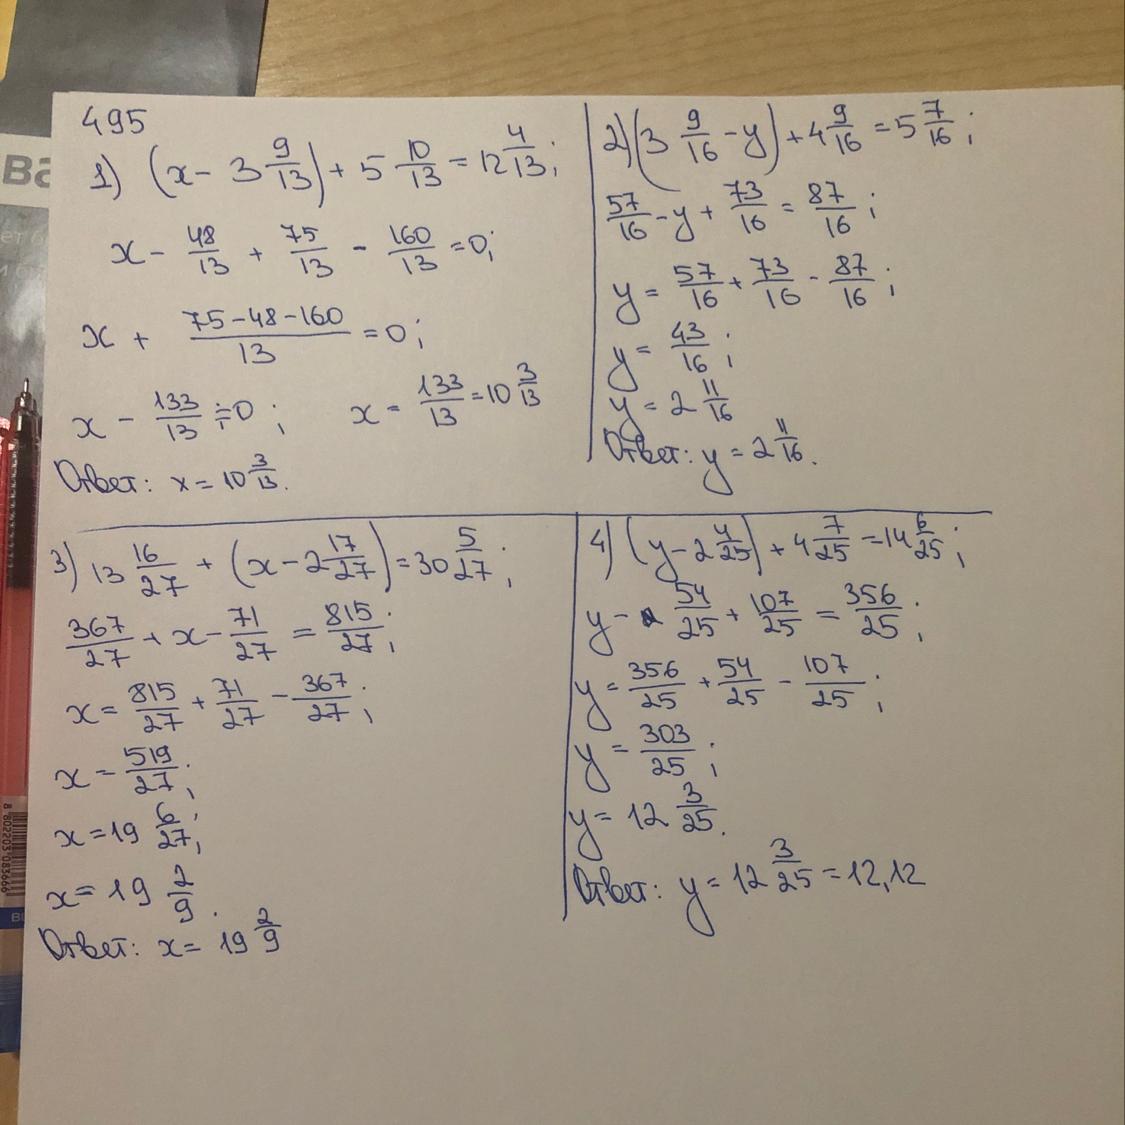 495
1) (x - 3 9/13) + 5 10/13 = 12 4/13;
x - 48/13 + 75/13 - 160/13 = 0;
x + (75-48-160)/13 = 0;
x - 133/13 = 0; x = 133/13 = 10 3/13
Ответ: x = 10 3/13.
2) (3 9/16 - y) + 4 9/16 = 5 7/16;
57/16 - y + 73/16 = 87/16;
y = 57/16 + 73/16 - 87/16;
y = 43/16;
y = 2 11/16
Ответ: y = 2 11/16.
3) 13 16/27 + (x - 2 17/27) = 30 5/27;
367/27 + x - 71/27 = 815/27;
x = 815/27 + 71/27 - 367/27;
x = 519/27;
x = 19 6/27;
x = 19 2/9.
Ответ: x = 19 2/9
4) (y - 2 4/25) + 4 7/25 = 14 6/25;
y - 54/25 + 107/25 = 356/25;
y = 356/25 + 54/25 - 107/25;
y = 303/25;
y = 12 3/25.
Ответ: y = 12 3/25 = 12,12
8 802203 083666